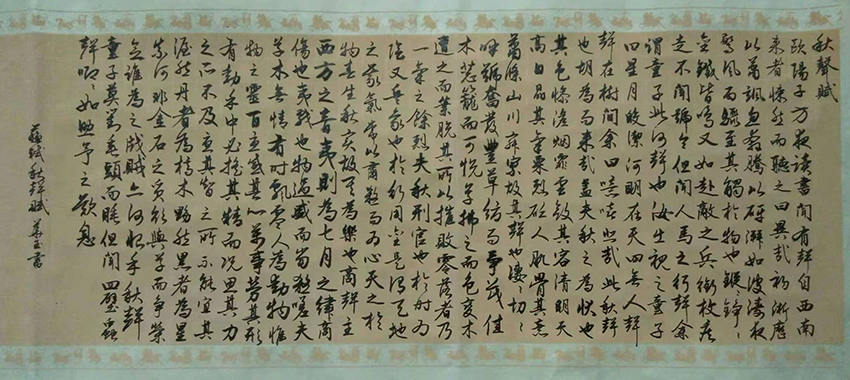 秋聲賦
歐陽子方夜讀書聞有聲自西南
來者悚然而聽之曰異哉初淅瀝
以蕭颯忽奔騰以砰湃如波濤夜
驚風雨驟至其觸於物也鏦錚〻
金鐵皆鳴又如赴敵之兵銜枚疾
走不聞號令但聞人馬之行聲余
謂童子此何聲也汝出視之童子
曰星月皎潔明河在天四無人聲
聲在樹間余曰噫嘻悲哉此秋聲
也胡為而來哉蓋夫秋之為狀也
其色慘淡烟霏雲斂其容清明天
高日晶其氣栗冽砭人肌骨其意
蕭條山川寂寥故其聲也淒〻切〻
呼號奮發豐草綠而爭茂佳
木葱蘢而可悅草拂之而色變木
遭之而葉脫其所以摧敗零落者乃
一氣之餘烈夫秋刑官也於時為
陰又兵象也於行用金是謂天地
之義氣常以肅殺而為心天之於
物春生秋實故其為樂也商聲主
西方之音夷則為七月之律商
傷也夷戮也物過盛而當殺嗟夫
草木無情有時飄零人為動物惟
物之靈百憂感其心萬事勞其形
有動乎中必搖其精而況思其力
之所不及憂其智之所不能宜其
渥然丹者為槁木黟然黑者為星
奈何非金石之質欲與草而爭榮
念誰為之戕賊亦何恨乎秋聲
童子莫對垂頭而睡但聞四壁蟲
聲唧〻如助予之歎息
秋聲賦